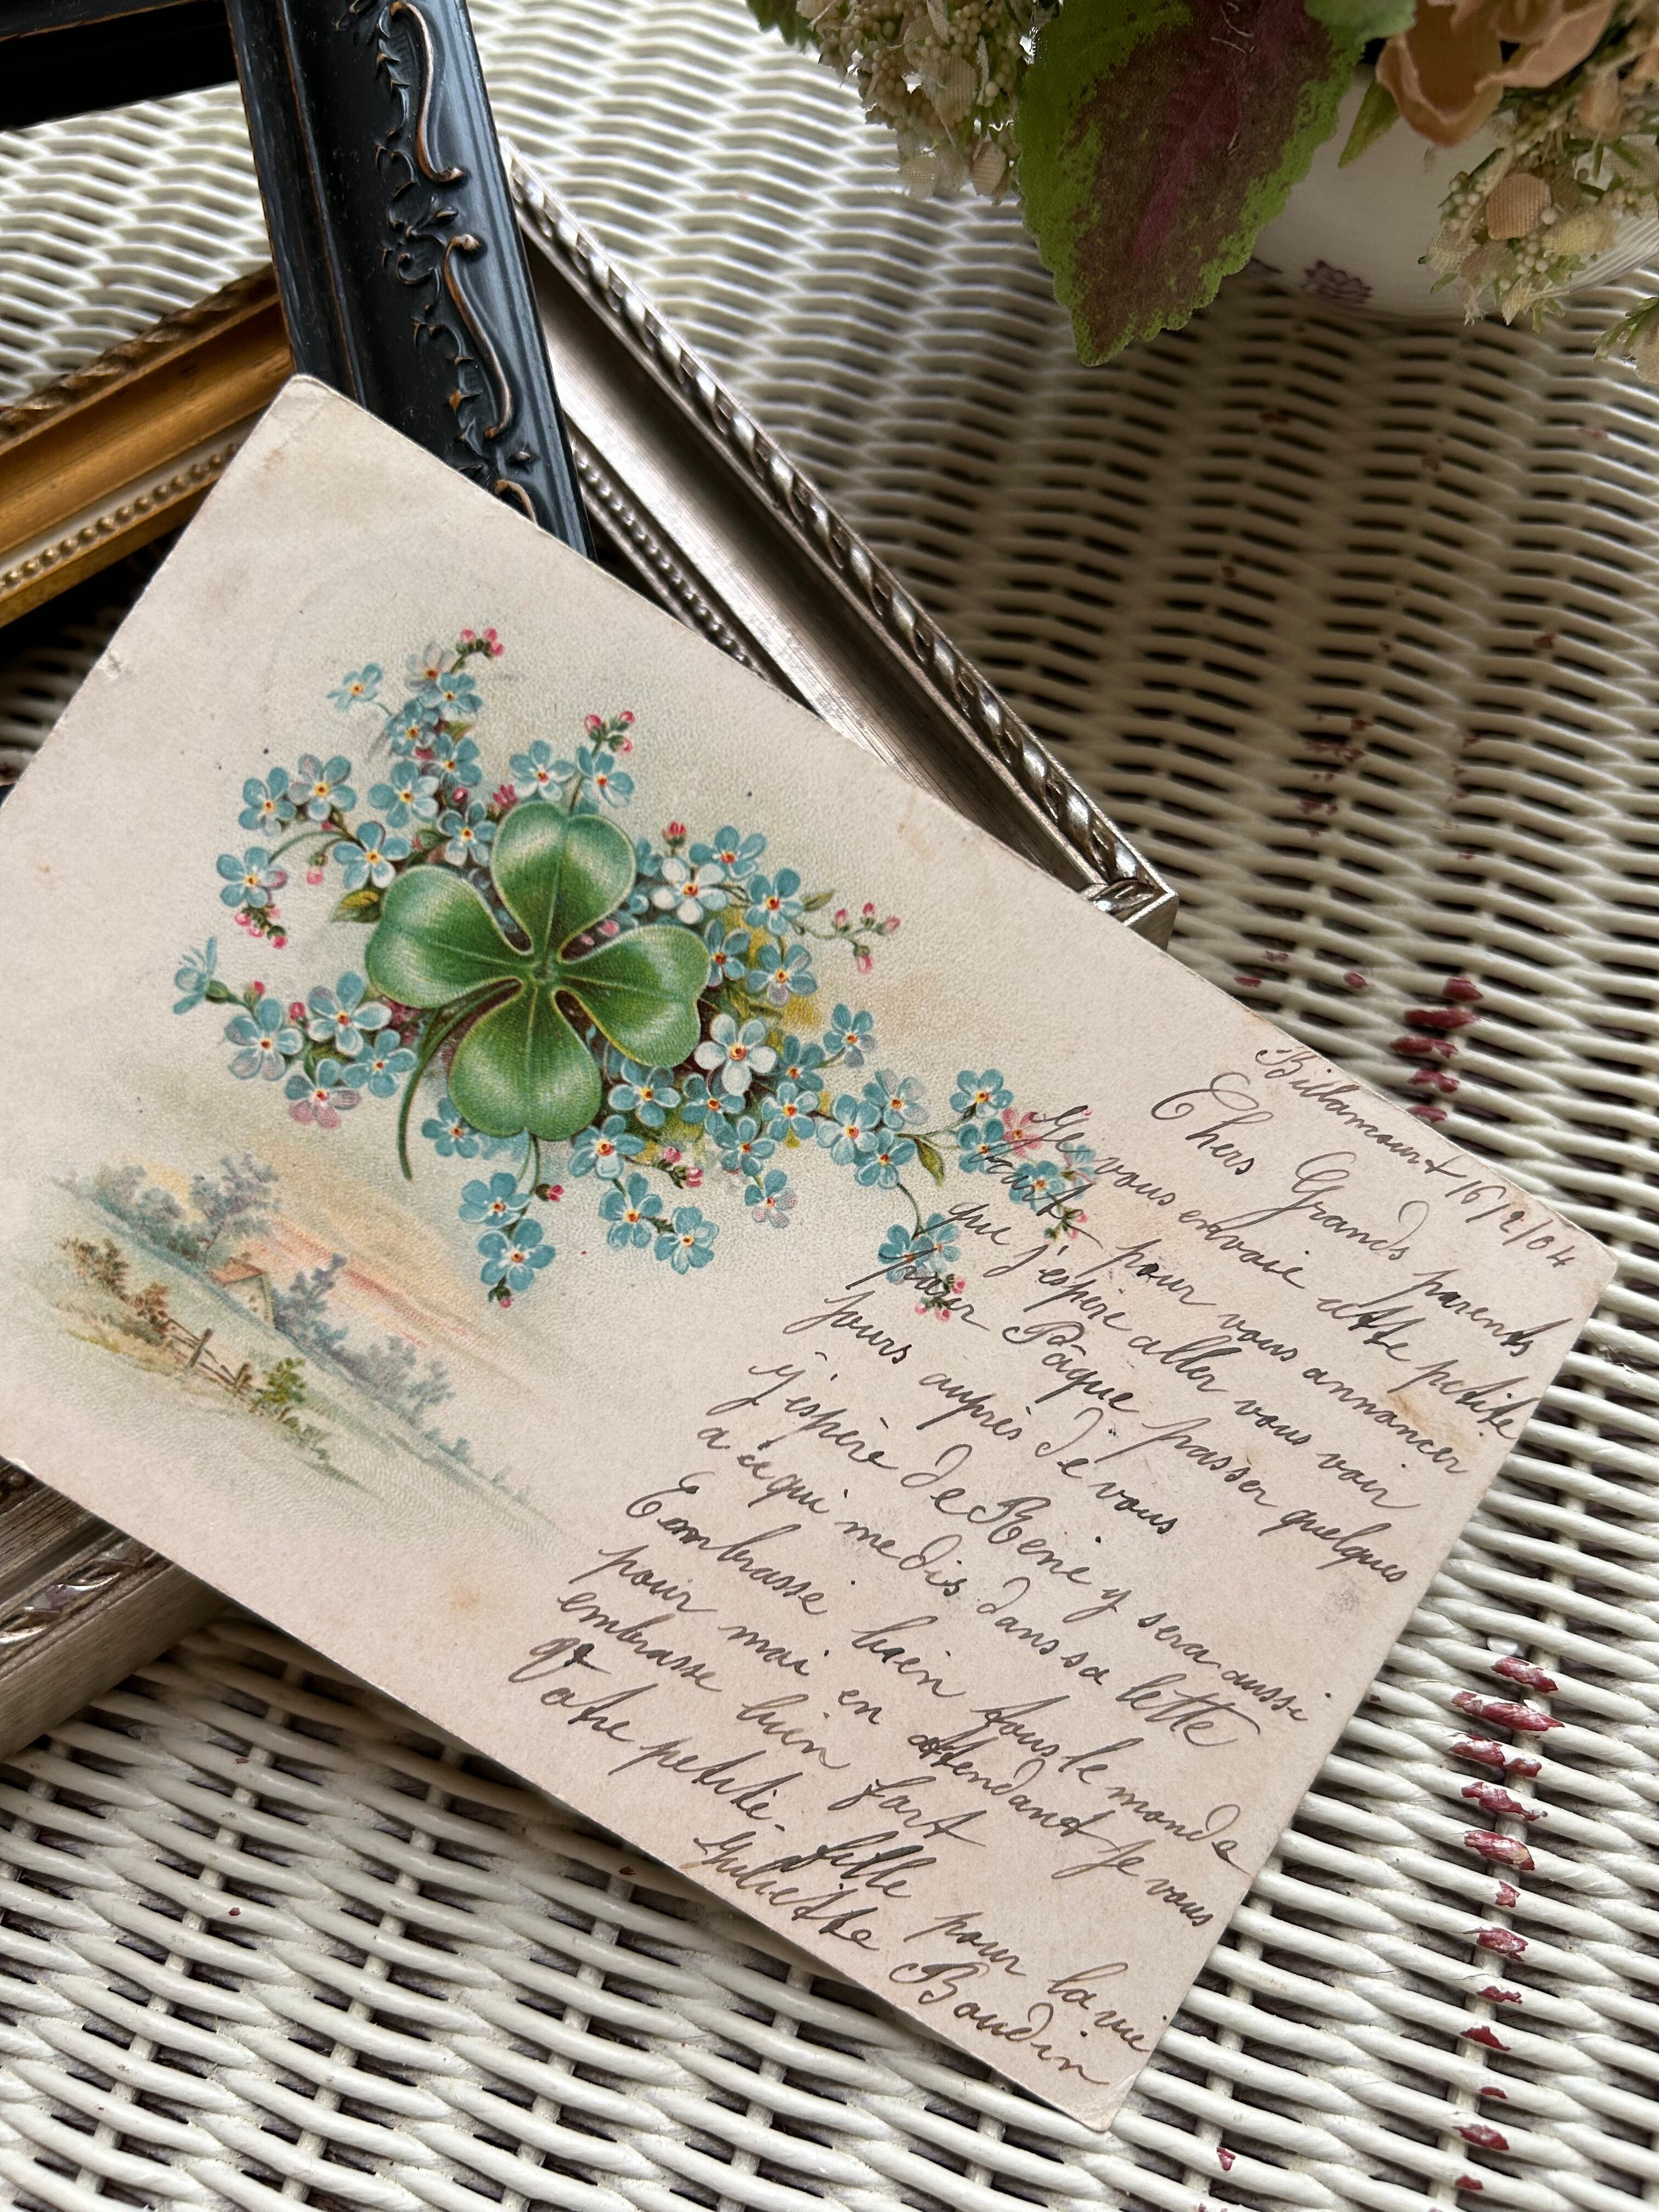 Billancourt 16/2/04
Chers Grands parents
Je vous envoie cette petite
carte pour vous annoncer
que j'espère aller vous voir
pour Pâque passer quelques
jours auprès de vous
j'espère de René y sera aussi
a ce qui me dis dans sa lettre
Embrasse bien tous le monde
pour moi en attendant je vous
embrasse bien fort
Votre petite-fille pour la vie
Juliette Boudin